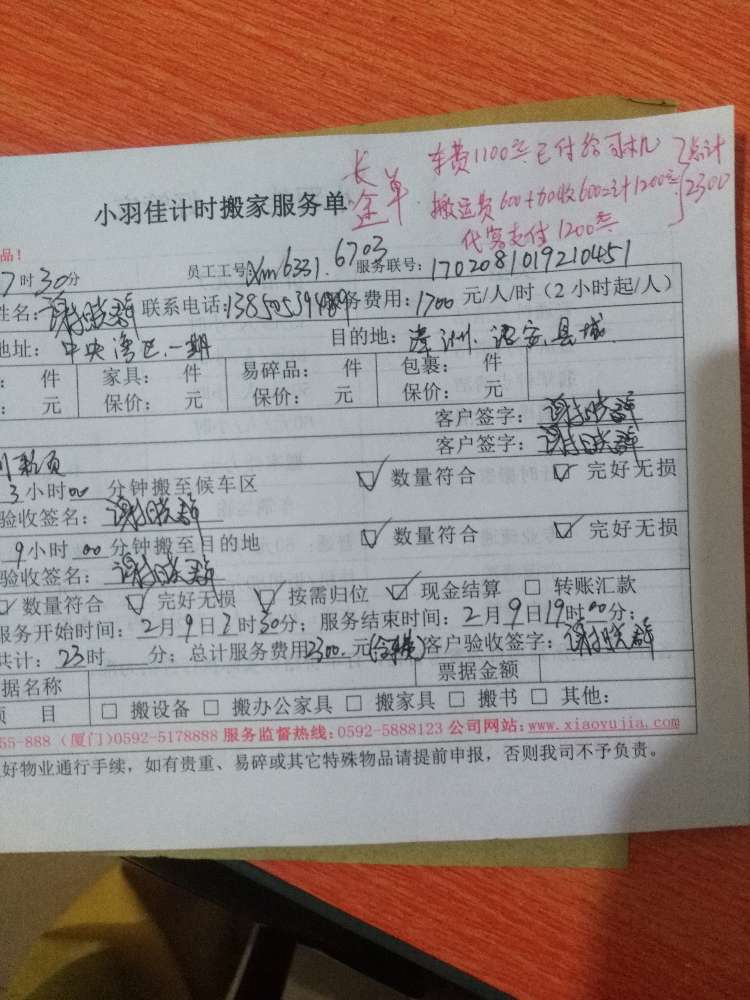 车费1100元已付给司机
总计
长途单
搬运费600+加收600=计1200元
2300
小羽佳计时搬家服务单
代客支付1200元
品!
7时30分
员工工号:Xm6331.6703
服务联号:1702081019210451
姓名: 联系电话: 务费用:1700元/人/时(2小时起/人)
地址:中央湾区.一期 目的地:漳州.诏安县城
: 件 家具: 件 易碎品: 件 包裹: 件
: 元 保价: 元 保价: 元 保价: 元
客户签字:
客户签字:
3小时00分钟搬至候车区 数量符合 完好无损
验收签名:
9小时00分钟搬至目的地 数量符合 完好无损
验收签名:
数量符合 完好无损 按需归位 现金结算 转账汇款
服务开始时间:2月9日7时30分;服务结束时间:2月9日19时00分;
共计:23时 分;总计服务费用2300.元(含车费)客户验收签字:
据名称 票据金额
项 目 搬设备 搬办公家具 搬家具 搬书 其他:
55-888 (厦门)0592-5178888 服务监督热线:0592-5888123 公司网站:www.xiaoyujia.com
好物业通行手续,如有贵重、易碎或其它特殊物品请提前申报,否则我司不予负责。